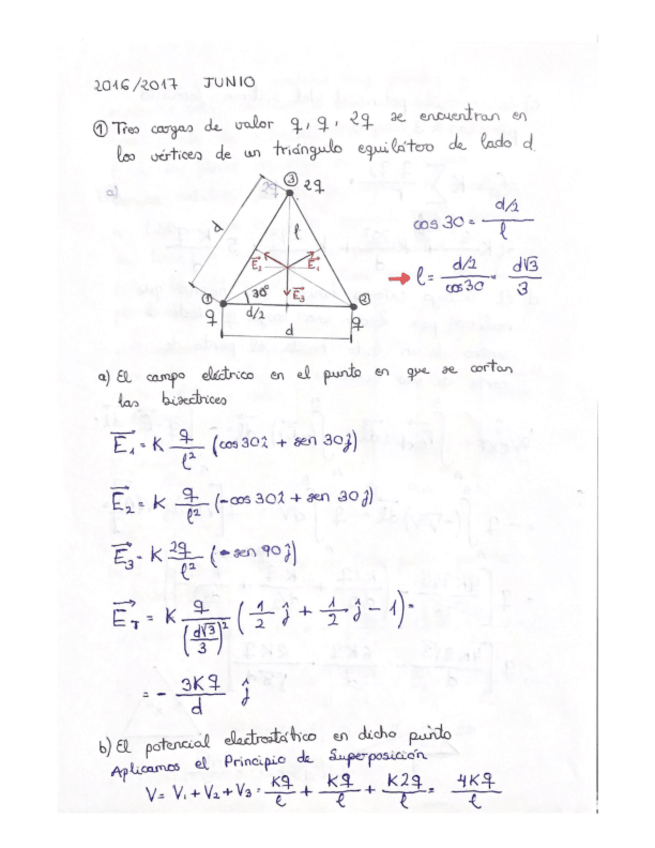 2016/2017 JUNIO
① Tres cargas de valor q, q, 2q se encuentran en
los vértices de un triángulo equilátero de lado d.
a)
③ 2q
2q
d
l
E₂ E₁
E₃
30°
① ②
q d/2 q
d
cos 30 = (d/2)/l
→ l = (d/2)/cos30 = d√3/3
a) El campo eléctrico en el punto en que se cortan
las bisectrices
E₁ = K q/l² (cos 30 î + sen 30 ĵ)
E₂ = K q/l² (-cos 30 î + sen 30 ĵ)
E₃ = K 2q/l² (-sen 90 ĵ)
E_T = K q/(d√3/3)² (1/2 ĵ + 1/2 ĵ - 1) =
= - 3Kq/d ĵ
b) El potencial electrostático en dicho punto
Aplicamos el Principio de Superposición
V = V₁ + V₂ + V₃ = Kq/l + Kq/l + K2q/l = 4Kq/l